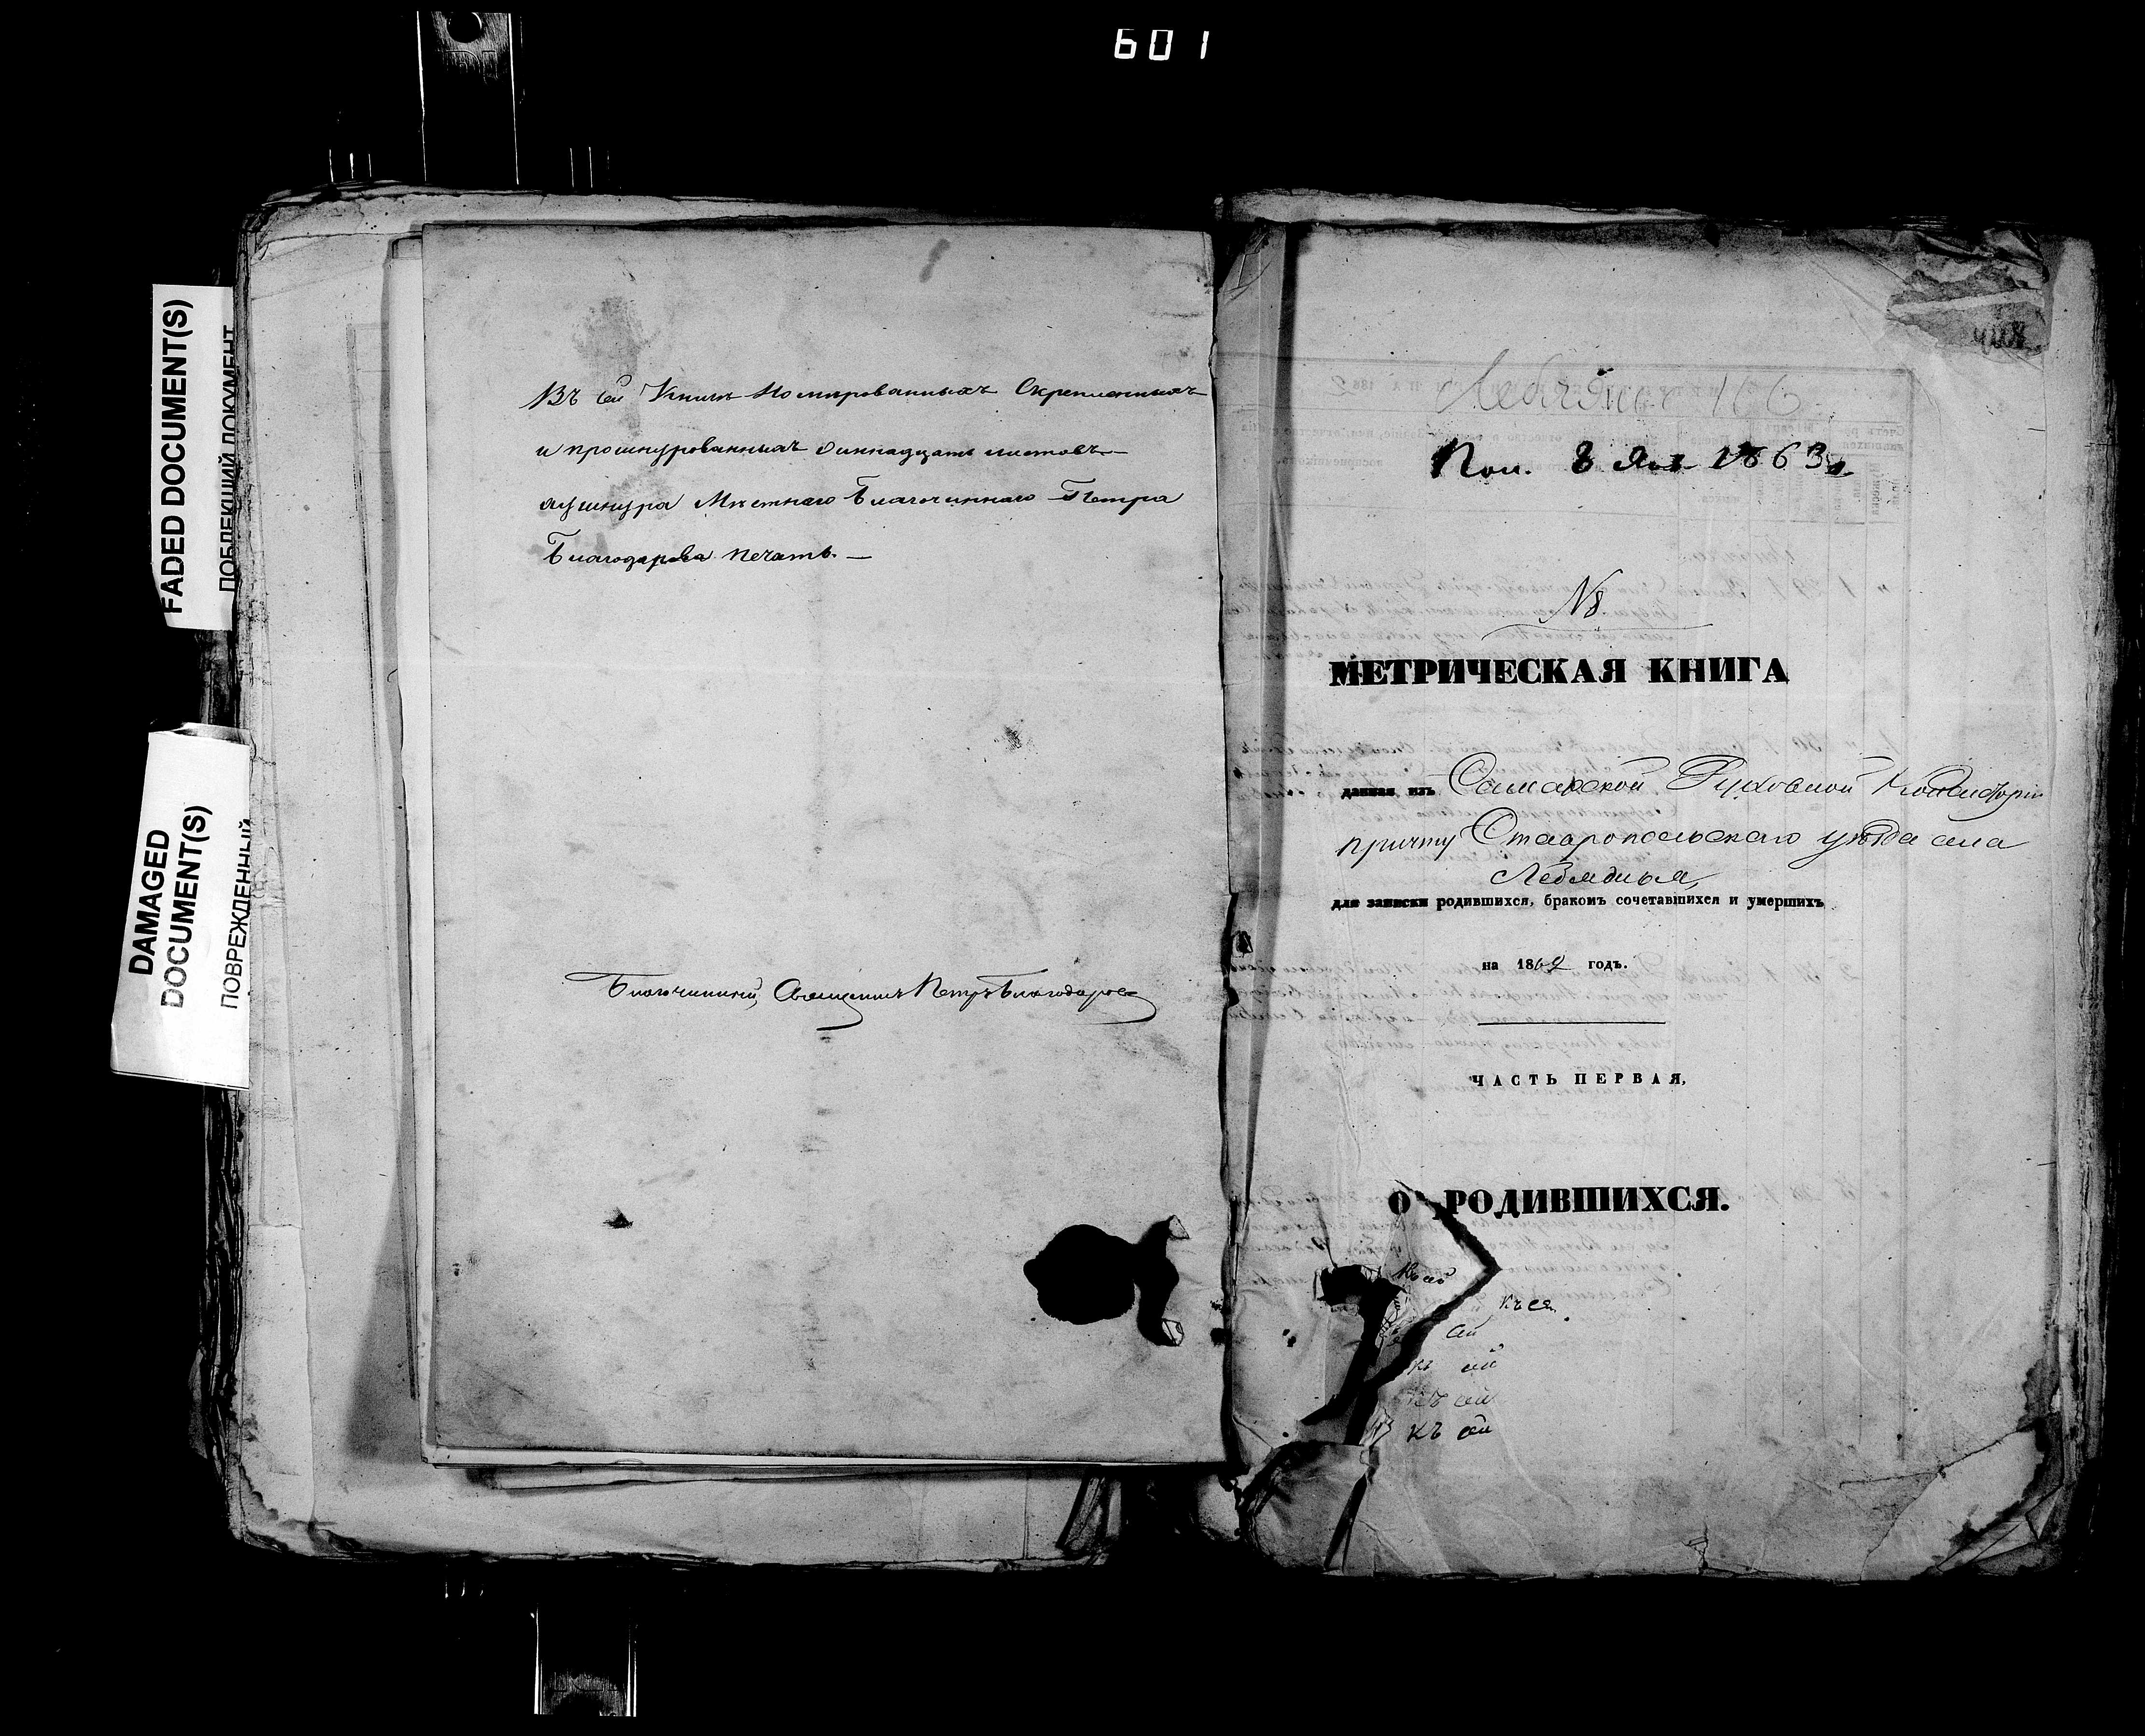 601
FADED DOCUMENT(S)
ПОБЛЕКШИЙ ДОКУМЕНТ
DAMAGED
DOCUMENT(S)
ПОВРЕЖДЕННЫЙ
Въ сей Книгѣ Номированныхъ Скрепленныхъ
и прошнурованныхъ одиннадцать листовъ
ау шнура Мѣстнаго Благочиннаго Петра
Благодарова печать. —
Благочинный, Священникъ Петръ Благодаровъ
Лебяжье 166
Пол. 8 Янв 1863
№
МЕТРИЧЕСКАЯ КНИГА
данная изъ Самарской Духовной Консисторіи
причту Ставропольскаго уѣзда села
Лебяжья,
для записки родившихся, бракомъ сочетавшихся и умершихъ
на 1862 годъ.
ЧАСТЬ ПЕРВАЯ,
О РОДИВШИХСЯ.
Къ сей
къ се
сей
къ сей
къ сей
къ сей